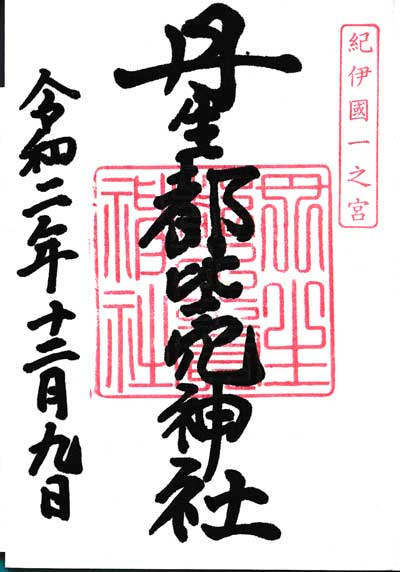 紀伊國一之宮
丹生都比売神社
丹生都比賣神社
令和二年十二月九日